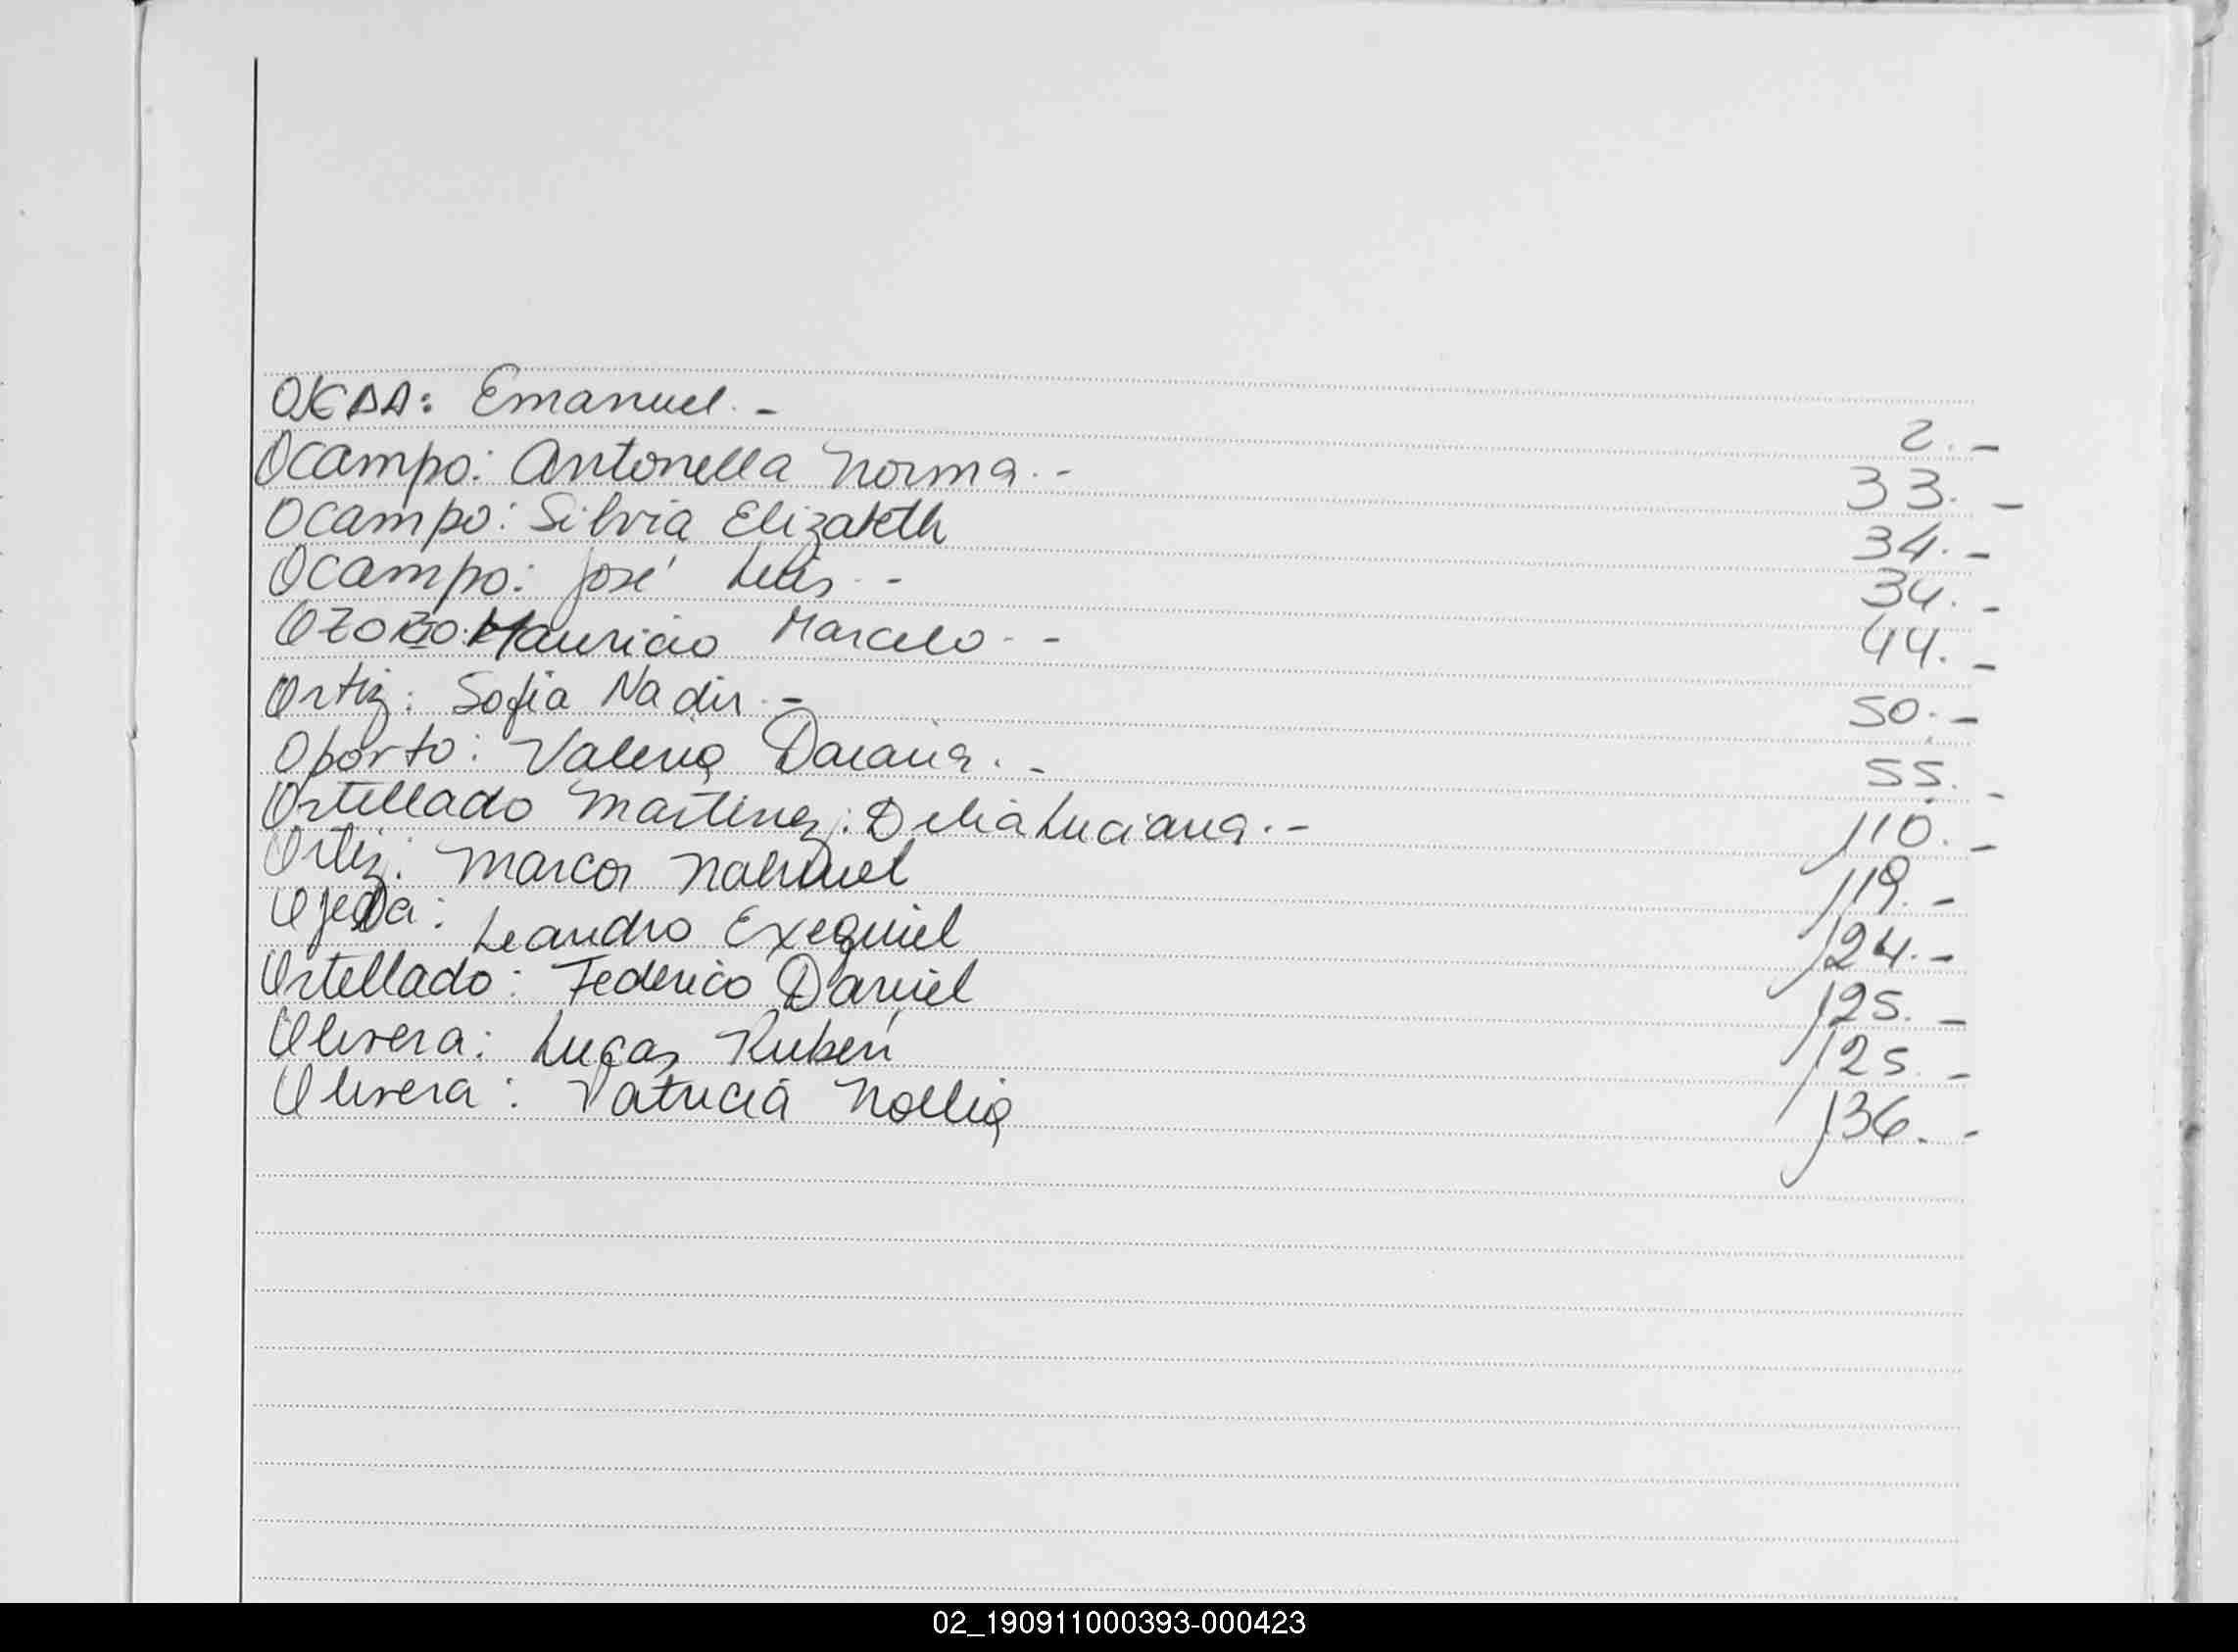 OJEDA: Emanuel.- 2.-
Ocampo: Antonella Norma.- 33.-
Ocampo: Silvia Elizabeth 34.-
Ocampo: José Luis.- 34.-
OZORIO: Mauricio Marcelo.- 44.-
Ortiz: Sofia Nadir.- 50.-
Oporto: Valeria Daiana.- 55.-
Ortellado Martinez: Delia Luciana.- 110.-
Ortiz: Marcos Nahuel 119.-
Ojeda: Leandro Exequiel 124.-
Ortellado: Federico Daniel 125.-
Olivera: Lucas Rubén 125.-
Olivera: Patricia Noelia 136.-
02_190911000393-000423